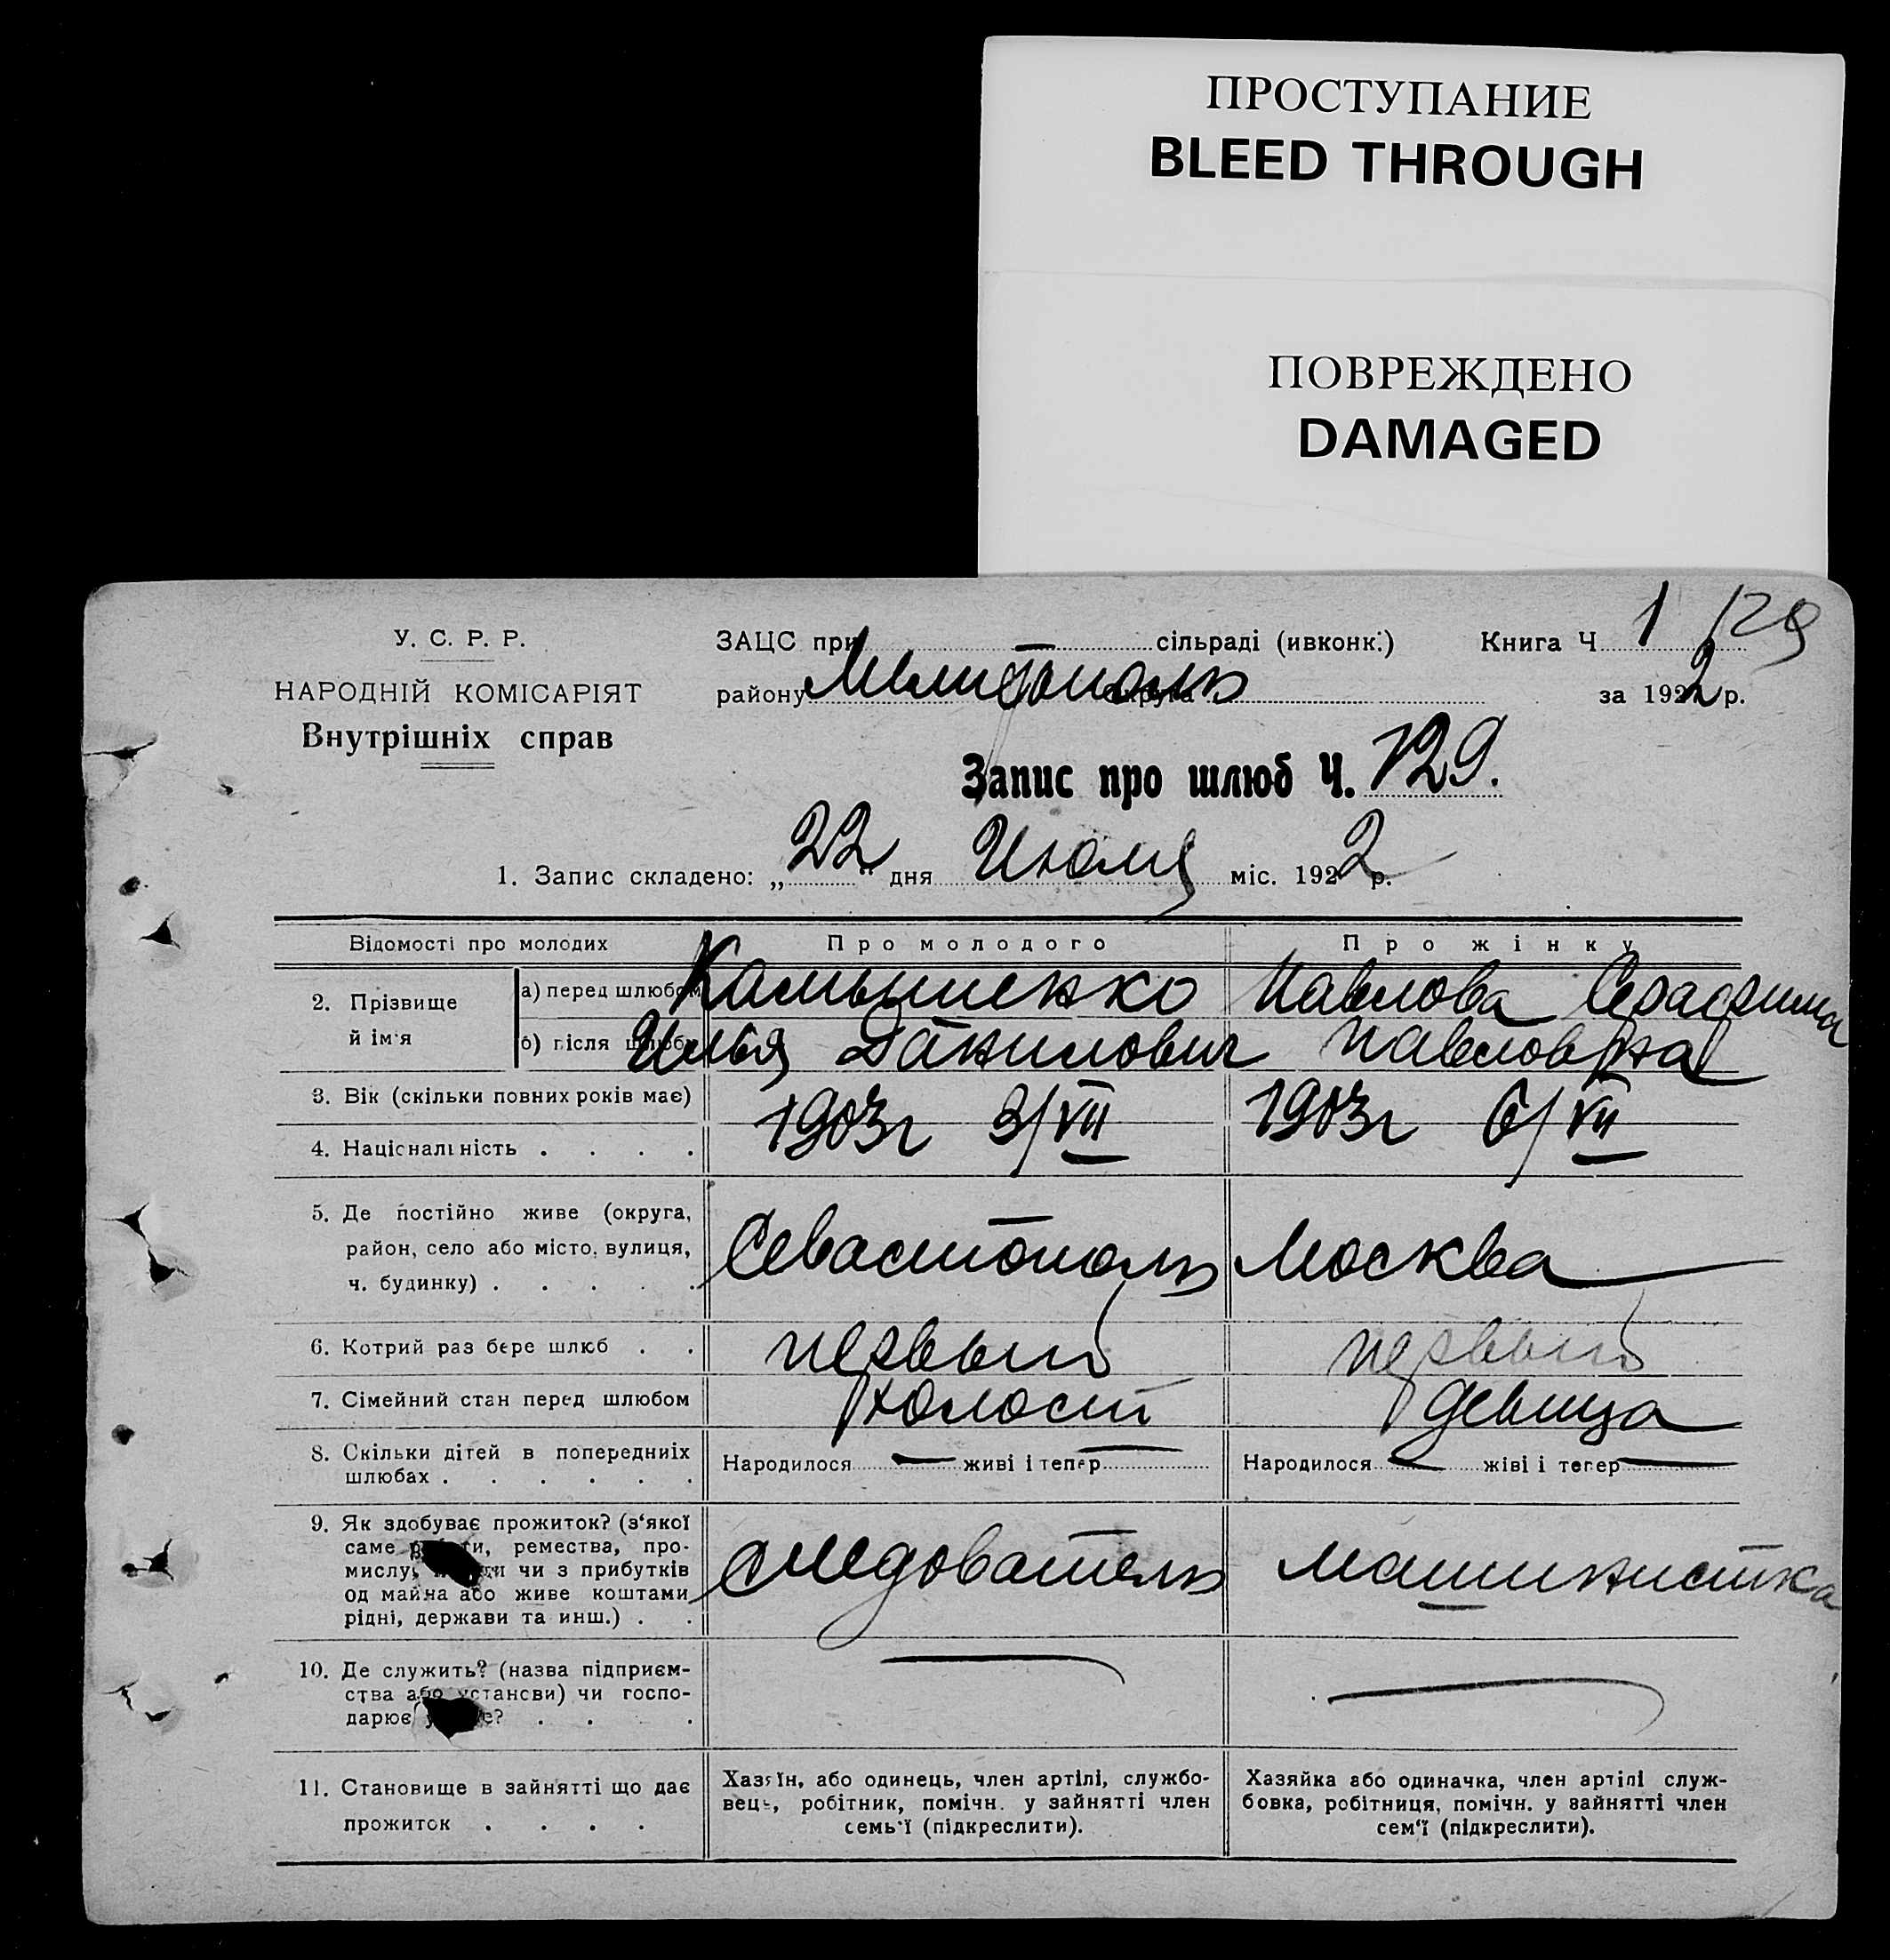 ПРОСТУПАНИЕ
BLEED THROUGH
ПОВРЕЖДЕНО
DAMAGED
У. С. Р. Р.
НАРОДНІЙ КОМІСАРІЯТ
Внутрішніх справ
ЗАЦС при — сільраді (ивконк.) Книга Ч 1 129
району Мелитополь округа за 1922 р.
Запис про шлюб Ч. 129.
1. Запис складено: „22“ дня Июля міс. 1922 р.
Відомості про молодих Про молодого Про жінку
2. Прізвище й ім'я
а) перед шлюбом Камышенко Павлова Серафима
б) після шлюбу Илья Данилович Павловна
3. Вік (скільки повних років має) 1903г 3/VII 1903г 6/VII
4. Національність . . . .
5. Де постійно живе (округа,
район, село або місто, вулиця,
ч. будинку) . . . . . Севастополь Москва
6. Котрий раз бере шлюб . . первый первый
7. Сімейний стан перед шлюбом холост девица
8. Скільки дітей в попередниіх
шлюбах . . . . . . Народилося — живі і тепер — Народилося — жіві і тепер —
9. Як здобуває прожиток? (з'якої
саме ремества, про-
мислу, чи з прибутків
од майна або живе коштами
рідні, держави та инш.) . . следователь машинистка
10. Де служить? (назва підприєм-
ства або установи) чи госпо-
дарює . . . — —
11. Становище в зайнятті що дає
прожиток . . . .
Хазяїн, або одинець, член артілі, службо-
вець, робітник, помічн. у зайнятті член
семь'ї (підкреслити).
Хазяйка або одиначка, член артілі служ-
бовка, робітниця, помічн. у зайнятті член
сем'ї (підкреслити).